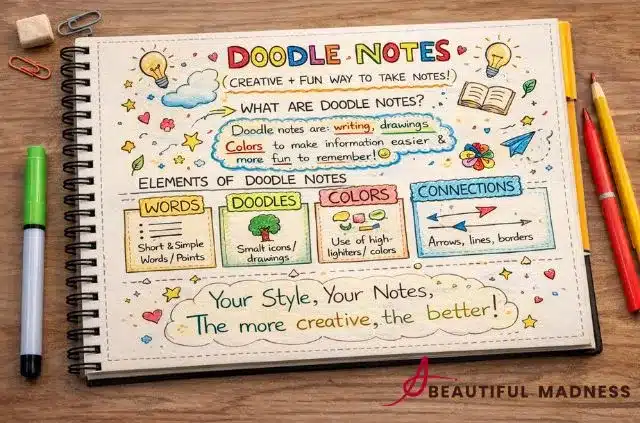 DOODLE NOTES
(CREATIVE + FUN WAY TO TAKE NOTES!)
WHAT ARE DOODLE NOTES?
Doodle notes are: writing, drawings
Colors to make information easier &
more fun to remember!
ELEMENTS OF DOODLE NOTES
WORDS
Short & Simple
Words / Points
DOODLES
Small icons/
drawings
COLORS
Use of high-
lighters / colors
CONNECTIONS
Arrows, lines, borders
Your Style, Your Notes,
The more creative, the better!
A BEAUTIFUL MADNESS